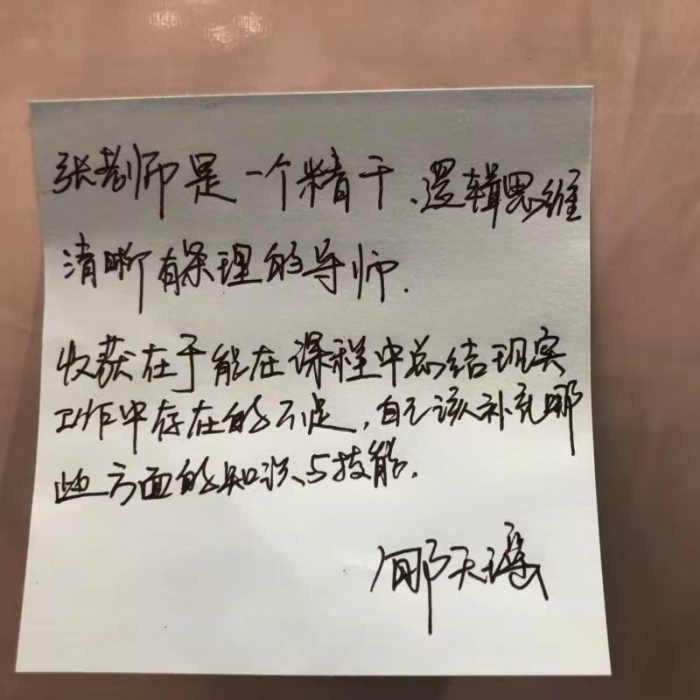 张老师是一个精干、逻辑思维
清晰有条理的导师.
收获在于能在课程中总结现实
工作中存在的不足,自己该补充哪
些方面的知识与技能.
天瑶